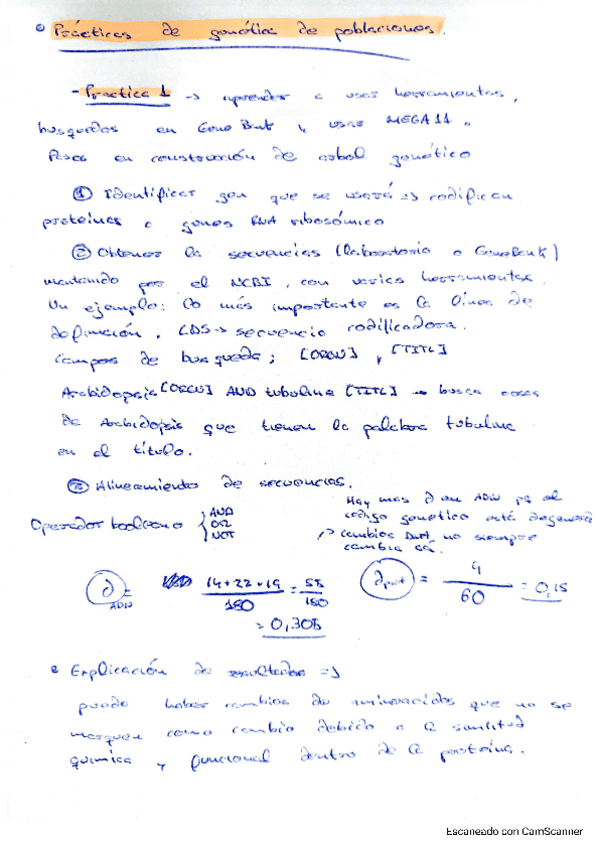 Prácticas de genética de poblaciones.
- Practica 1 → aprender a usar herramientas,
busquedas en GeneBank y usar MEGA11.
Pasos en construcción de arbol genético
① Identificar gen que se usará => codifican
proteinas o genes RNA ribosómico
② Obtener la secuencias (laboratorio o GeneBank)
mantenido por el NCBI, con varias herramientas.
Un ejemplo: Lo más importante es la línea de
definición, CDS → secuencia codificadora.
Campos de busqueda; [ORGN], [TITL]
Arabidopsis [ORGN] AND tubulina [TITL] → busca cosas
de Arabidopsis que tienen la palabra tubulina
en el título.
③ Alineamiento de secuencias.
Operador booleano { AND OR NOT
Hay mas ∂ en ADN pq el
código genético está degenerado
↗ cambios DNA no siempre
cambia aá.
∂ ADN = 14+22+19 / 180 = 55 / 180
= 0,305
∂ prot = 9 / 60 = 0,15
Explicación de resultados =>
puede haber cambios de aminoacidos que no se
marquen como cambio debido a la similitud
química y funcional dentro de la proteína.
Escaneado con CamScanner